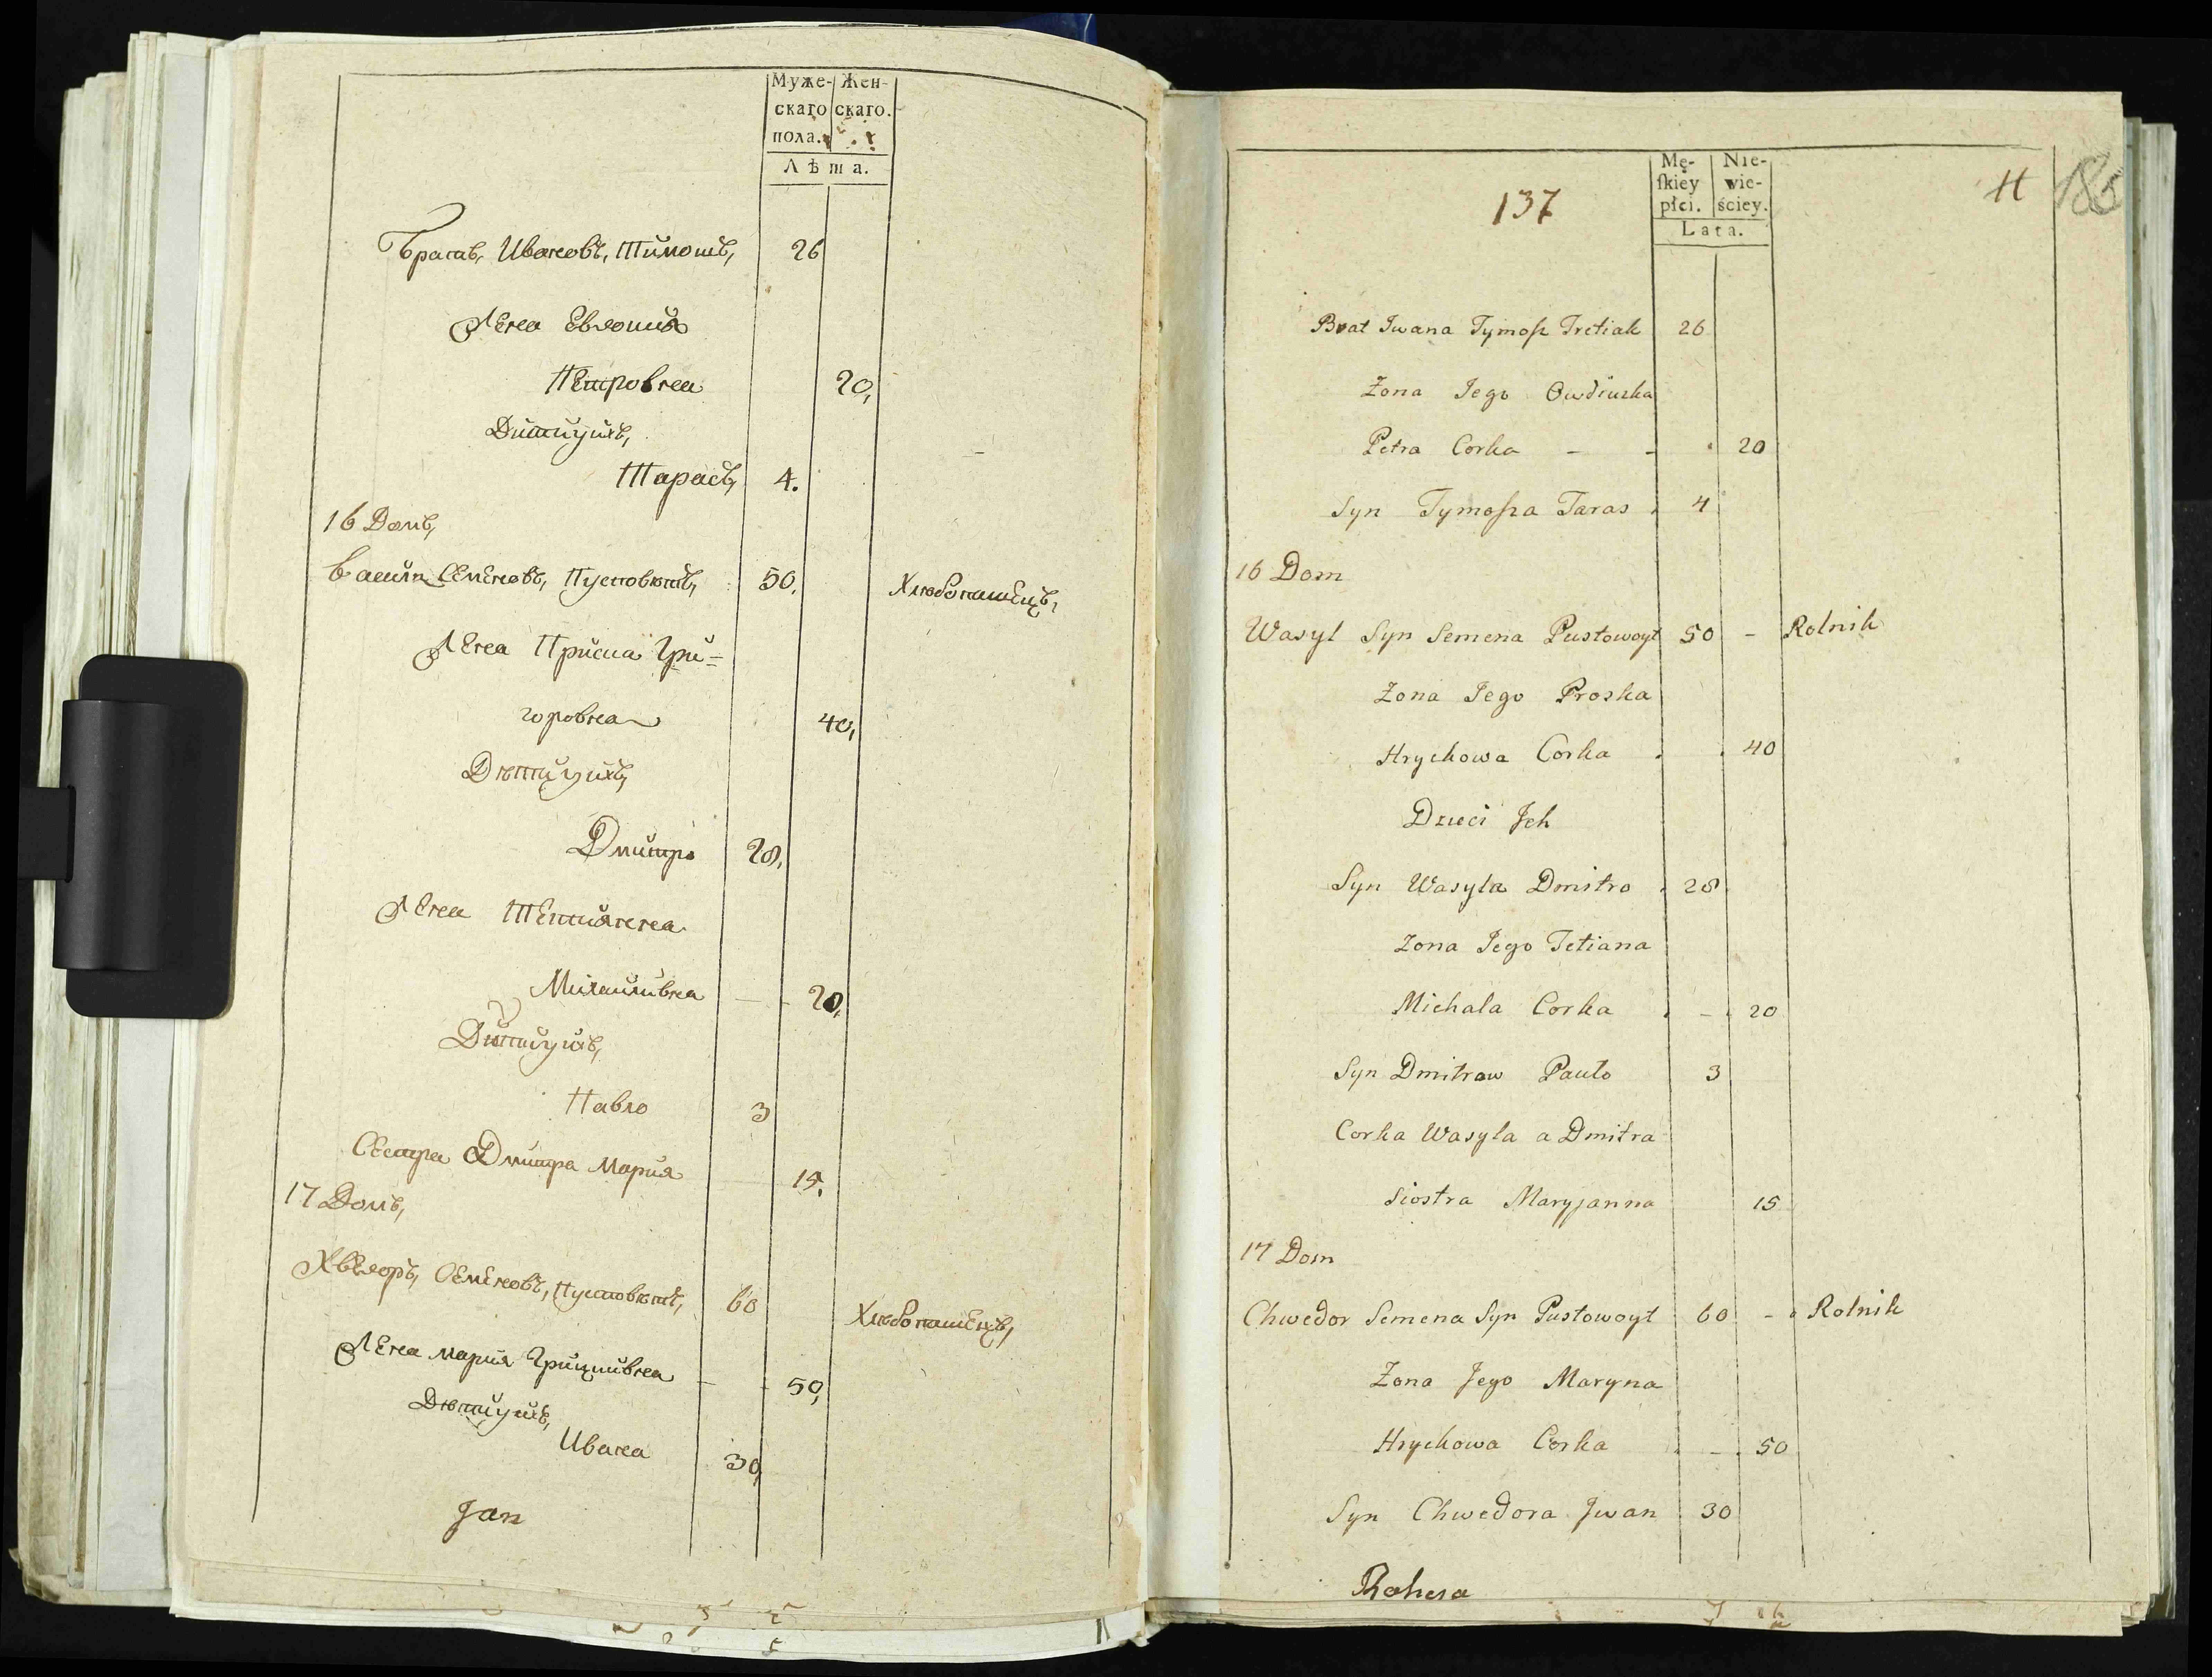 Муже-
скаго
пола.
Жен-
скаго.
Лѣта.
Братъ, Ивановъ, Тимошъ, 26
Жена Евдокия
Петровна 20,
Дитиухъ,
Тарасъ, 4.
16 Домъ,
Василь Семеновъ, Пустовютъ, 50. Хлебопашецъ,
Жена Приска Гри=
горовна 40,
Дютиухъ,
Дмитро 28,
Жена Тетиянна
Михайливна - - 20,
Дитиухъ,
Павло 3
Сестра Дмитра Мария 15.
17 Домъ,
Хведоръ, Семеновъ, Пустовютъ, 60 Хлебопашецъ,
Жена Мария Грициивна - - 50,
Дютиухъ,
Ивана 30,
Jan
137
Mę-
ſkiey
płci.
Nie-
wie-
ściey.
Lata.
H
Brat Iwana Tymoſz Tretiak 26
Zona Jego Owdiuszka
Petra Corka - - 20
Syn Tymoſza Taras 4
16 Dom
Wasyl Syn Semena Pustowoyt 50 - Rolnik
Zona Jego Proska
Hrychowa Corka 40
Dzieci Jch
Syn Wasyla Dmitro 28
Zona Jego Tetiana
Michala Corka - 20
Syn Dmitrow Pawlo 3
Corka Wasyla a Dmitra
Siostra Maryjanna 15
17 Dom
Chwedor Semena Syn Pustowoyt 60 - Rolnik
Zona Jego Maryna
Hrychowa Corka - 50
Syn Chwedora Jwan 30